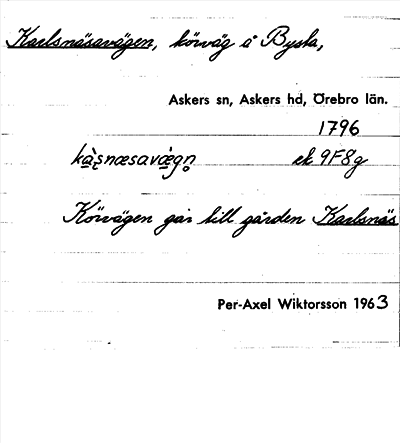 Karlsnäsavägen, körväg å Bysta,
Askers sn, Askers hd, Örebro län.
1796
kà̱ʈsnæsavæ̱gn̥ ek 9F8g
Körvägen går till gården Karlsnäs
Per-Axel Wiktorsson 1963